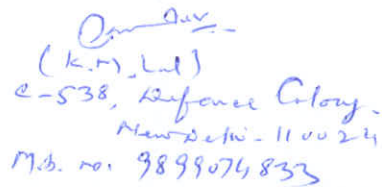 (K.M. Lal)
C-538, Defence Colony.
New Delhi-110024
Mb. no. 9899074833